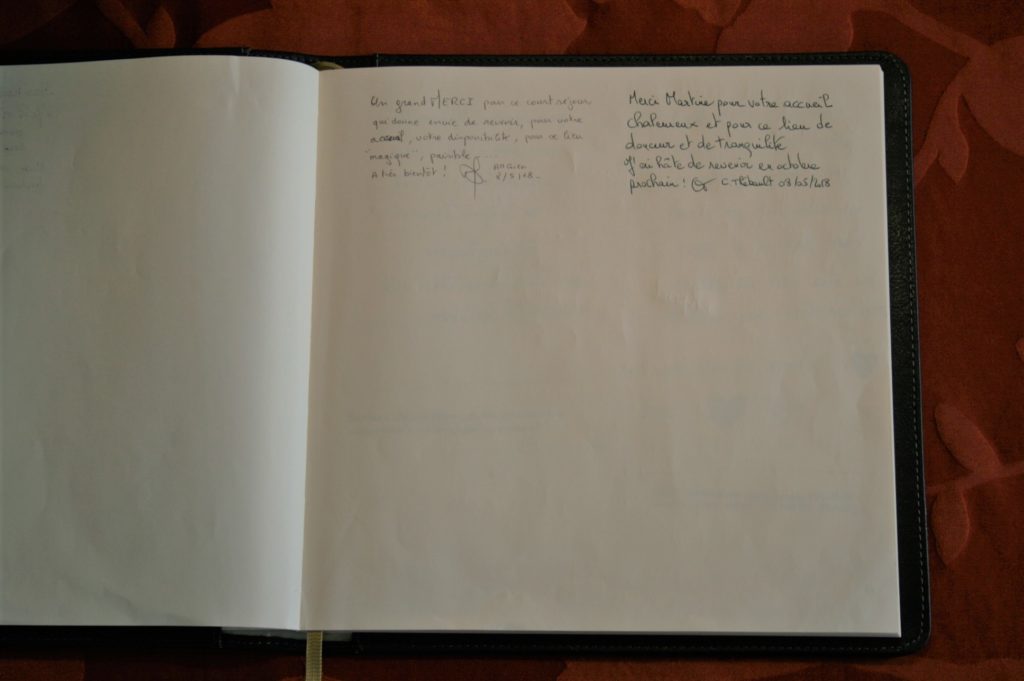 Un grand MERCI pour ce court séjour
qui donne envie de revenir, pour votre
accueil, votre disponibilité, pour ce lieu
"magique", paisible ......
A très bientôt !
8/5/18.
Merci Martine pour votre accueil
chaleureux et pour ce lieu de
douceur et de tranquilité
J'ai hâte de revenir en octobre
prochain ! C Thébault 08/05/18